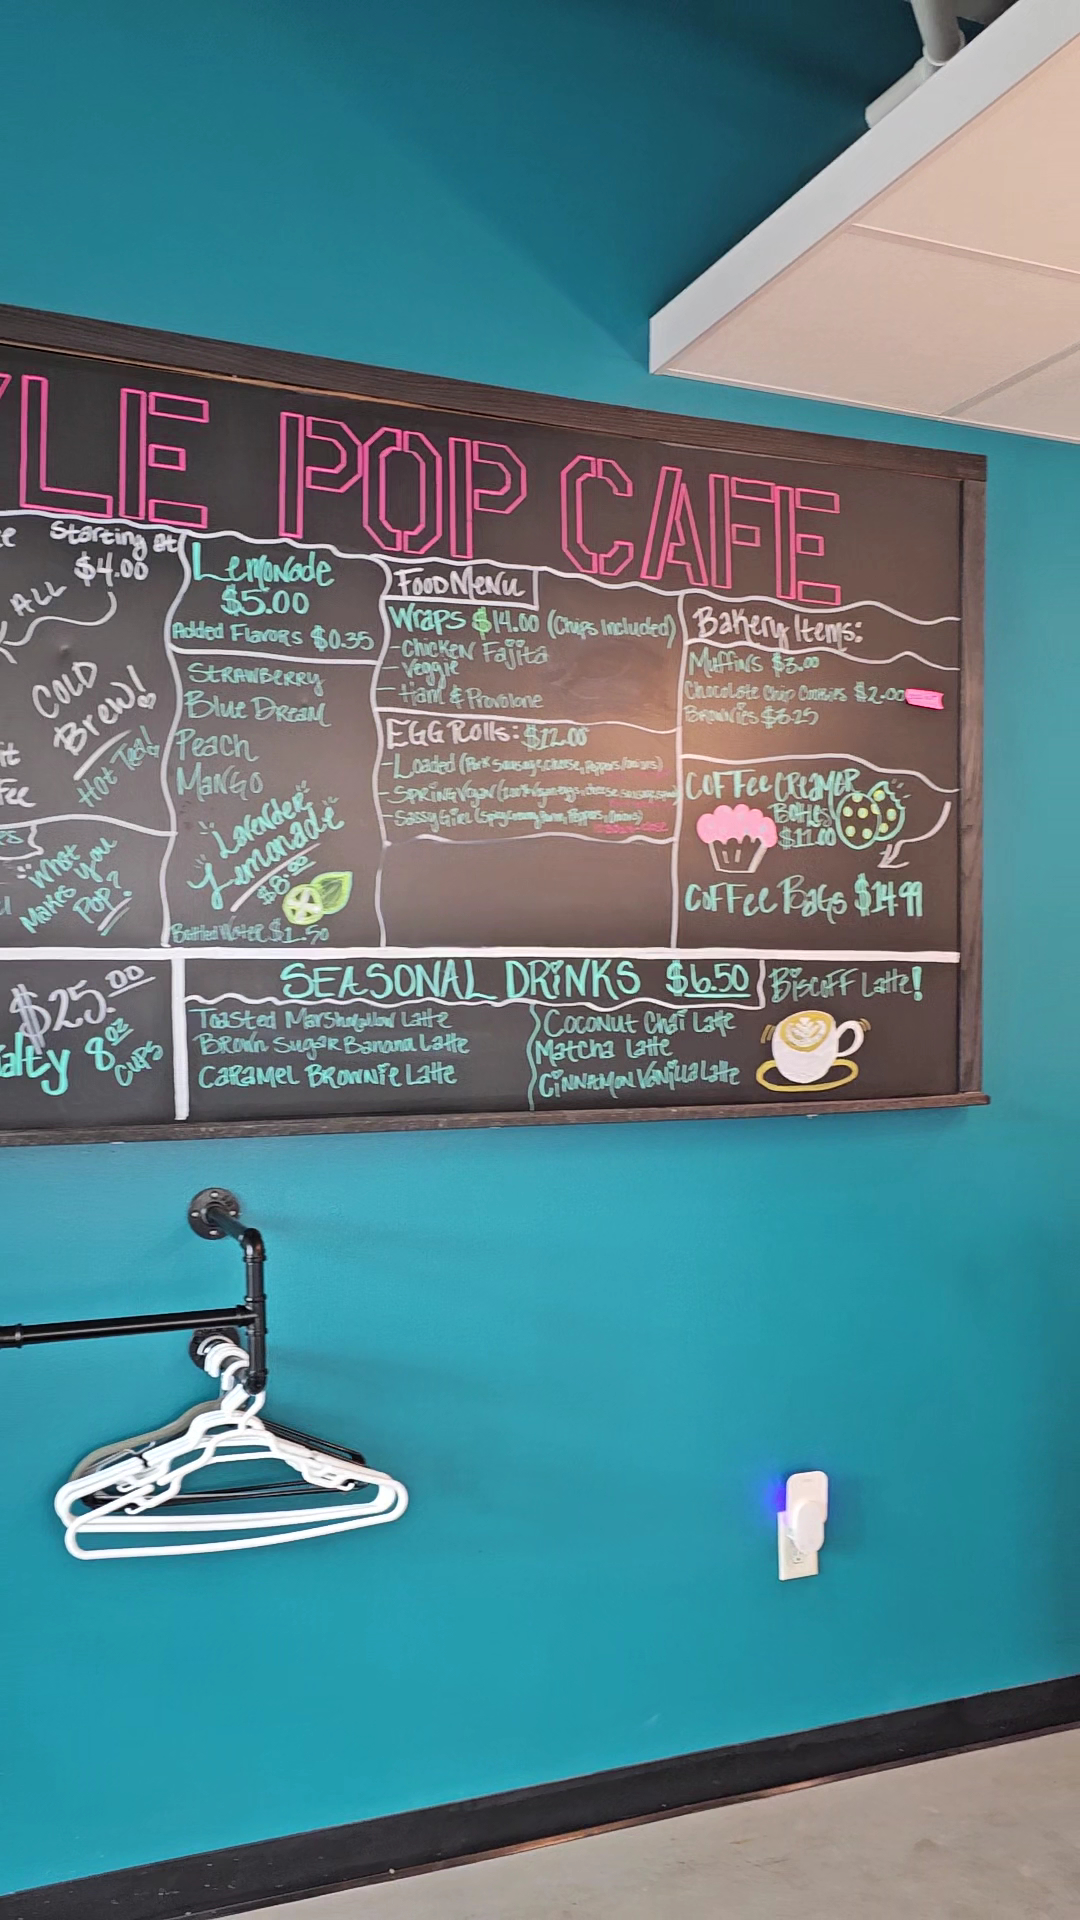 LE POP CAFE
Starting at
$4.00
ALL
COLD
BREW!
Hot Tea!
What
Makes you
Pop?
Lemonade
$5.00
Added Flavors $0.35
Strawberry
Blue Dream
Peach
Mango
Lavender
Lemonade
Bottled Water $1.50
Food Menu
Wraps $14.00 (Chips Included)
- Chicken Fajita
- Veggie
- Ham & Provolone
EGG Rolls: $12.00
- Loaded (Pork Sausage, Cheese, Peppers, Onions)
- Spring Vegan
- Sassy Girl
Bakery Items:
Muffins $3.00
Chocolate Chip Cookies $2.00
Brownies $3.25
Coffee Creamer
Bottles
$11.00
Coffee Bags $14.99
$25.00
8oz
Cups
SEASONAL DRINKS $6.50
Toasted Marshmallow Latte
Brown Sugar Banana Latte
Caramel Brownie Latte
Coconut Chai Latte
Matcha Latte
Cinnamon Vanilla Latte
Biscoff Latte!